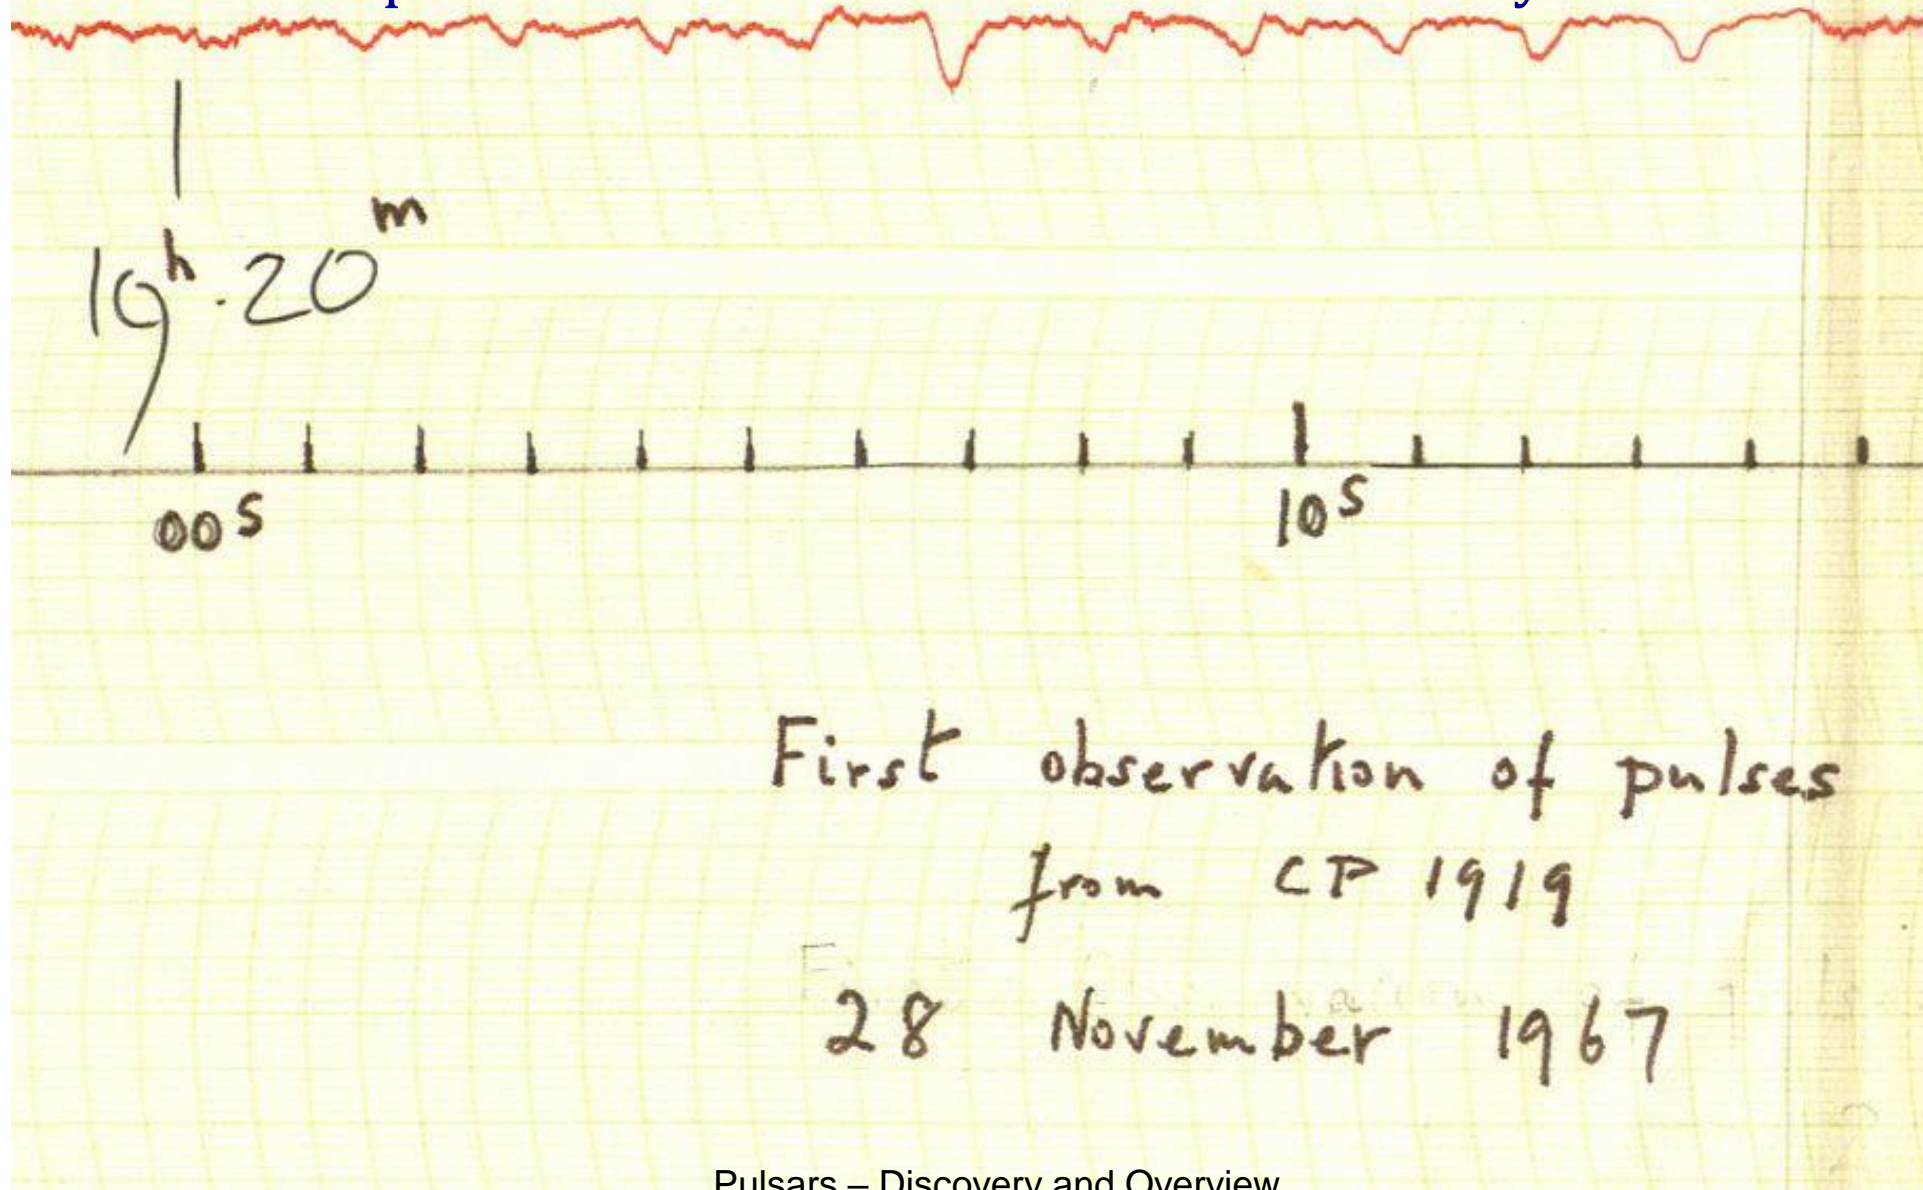 19ʰ.20ᵐ
00ˢ 10ˢ
First observation of pulses
from CP 1919
28 November 1967
Pulsars – Discovery and Overview